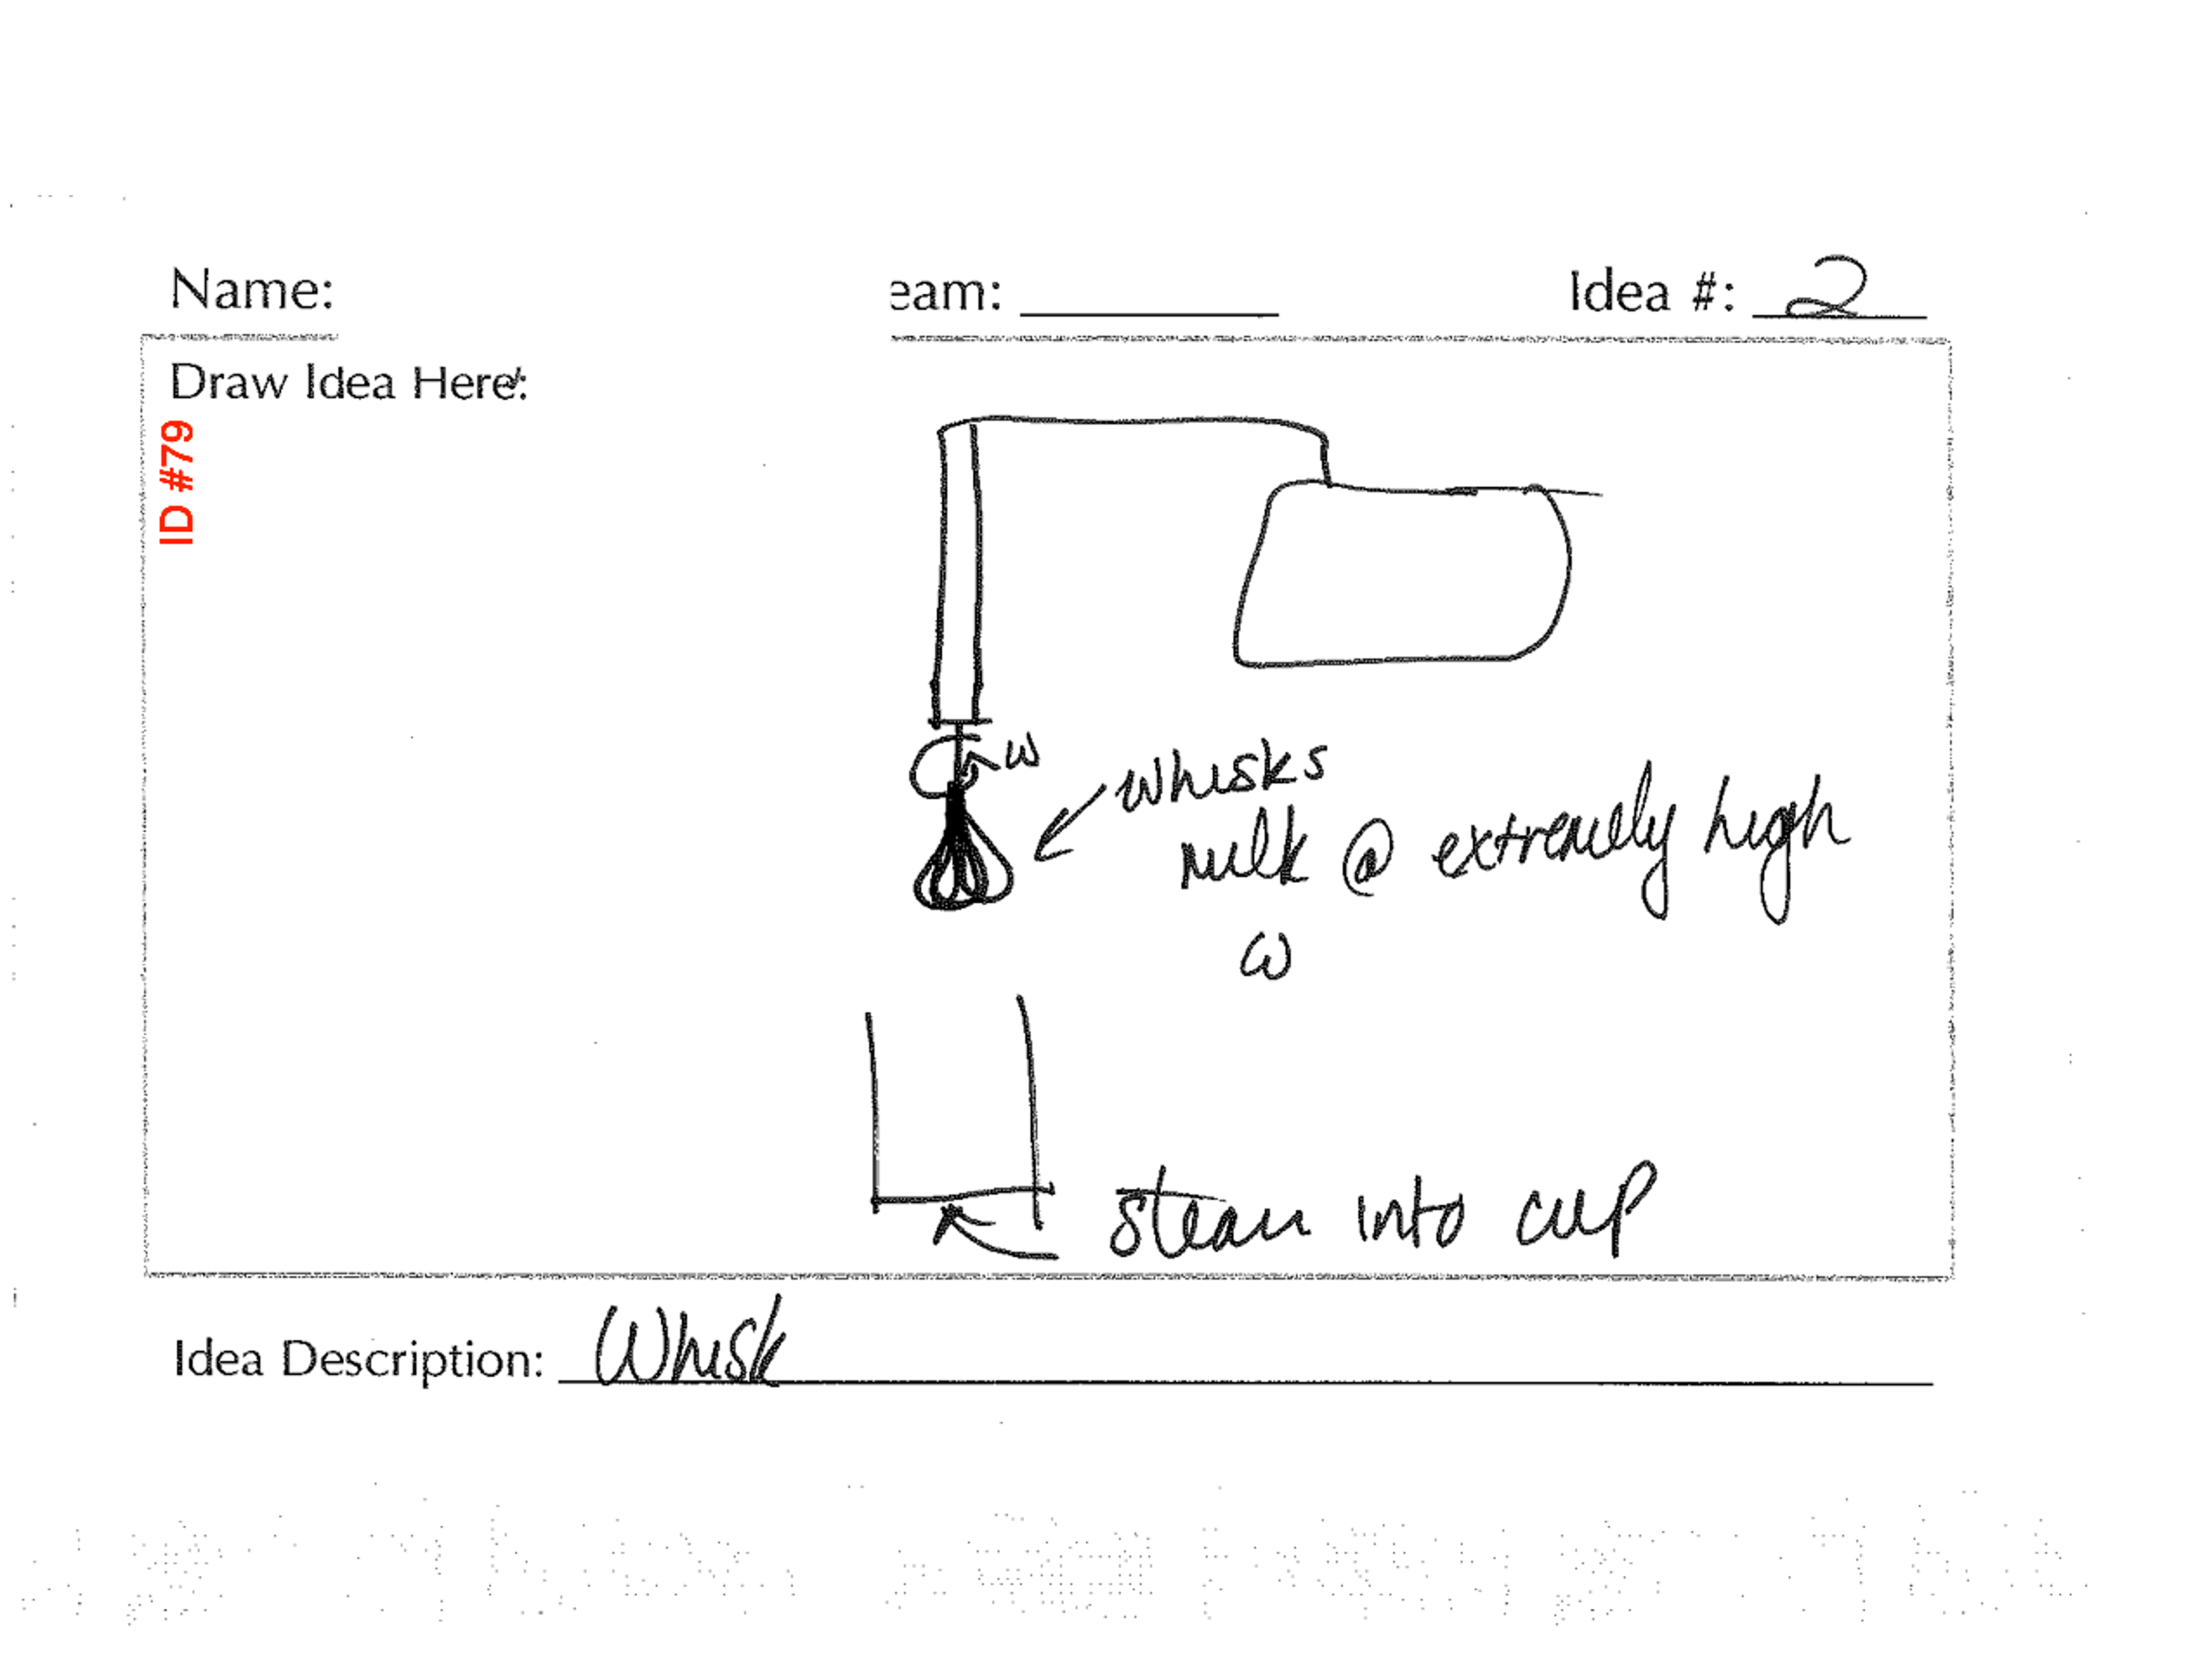 Name:
eam:
Idea #: 2
Draw Idea Here:
ID #79
ω
whisks
milk @ extremely high
ω
steam into cup
Idea Description: Whisk